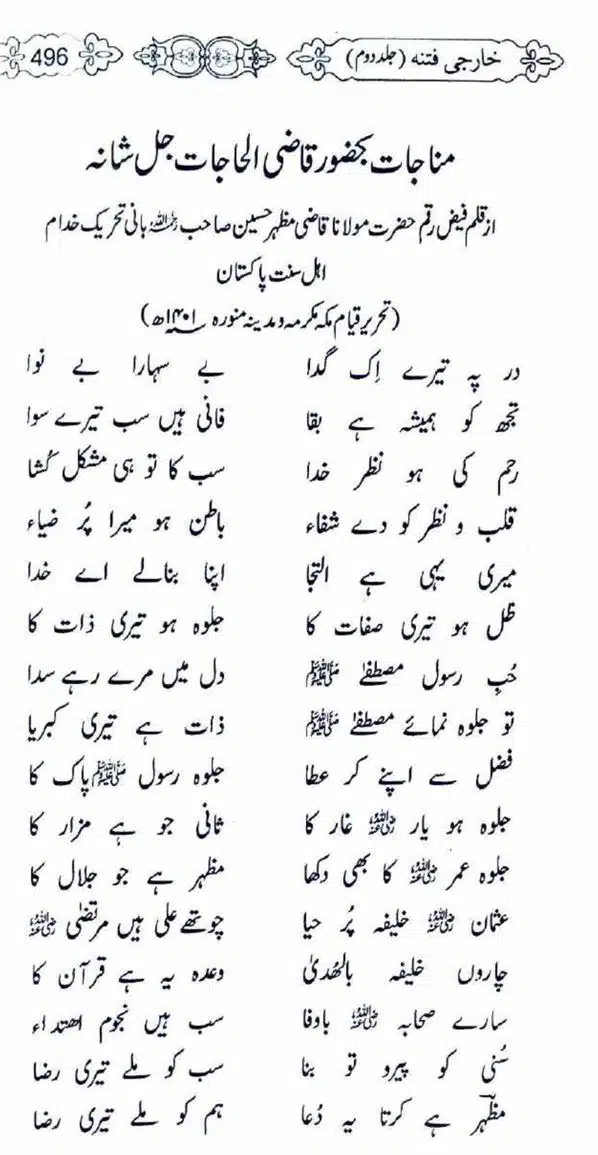 خارجی فتنہ (جلد دوم) 496
مناجات بحضور قاضی الحاجات جل شانہ
از قلم فیض رقم حضرت مولانا قاضی مظہر حسین صاحب رحمہ اللہ بانی تحریک خدام
اہل سنت پاکستان
(تحریر قیام مکہ مکرمہ و مدینہ منورہ ۱۴۰۱ھ)
در پہ تیرے اِک گدا بے سہارا بے نوا
تجھ کو ہمیشہ ہے بقا فانی ہیں سب تیرے سوا
رحم کی ہو نظر خدا سب کا تو ہی مشکل کُشا
قلب و نظر کو دے شفاء باطن ہو میرا پُر ضیاء
میری یہی ہے التجا اپنا بنالے اے خدا
ظل ہو تیری صفات کا جلوہ ہو تیری ذات کا
حُبِ رسول مصطفےٰ ﷺ دل میں مرے رہے سدا
تو جلوہ نمائے مصطفےٰ ﷺ ذات ہے تیری کبریا
فضل سے اپنے کر عطا جلوہ رسول ﷺ پاک کا
جلوہ ہو یار رضی اللہ عنہ غار کا ثانی جو ہے مزار کا
جلوہ عمر رضی اللہ عنہ کا بھی دکھا مظہر ہے جو جلال کا
عثمان رضی اللہ عنہ خلیفہ پُر حیا چوتھے علی ہیں مرتضیٰ رضی اللہ عنہ
چاروں خلیفہ بالھُدیٰ وعدہ یہ ہے قرآن کا
سارے صحابہ رضی اللہ عنہ باوفا سب ہیں نجوم اھتداء
سُنی کو پیرو تو بنا سب کو ملے تیری رضا
مظہر ہے کرتا یہ دُعا ہم کو ملے تیری رضا